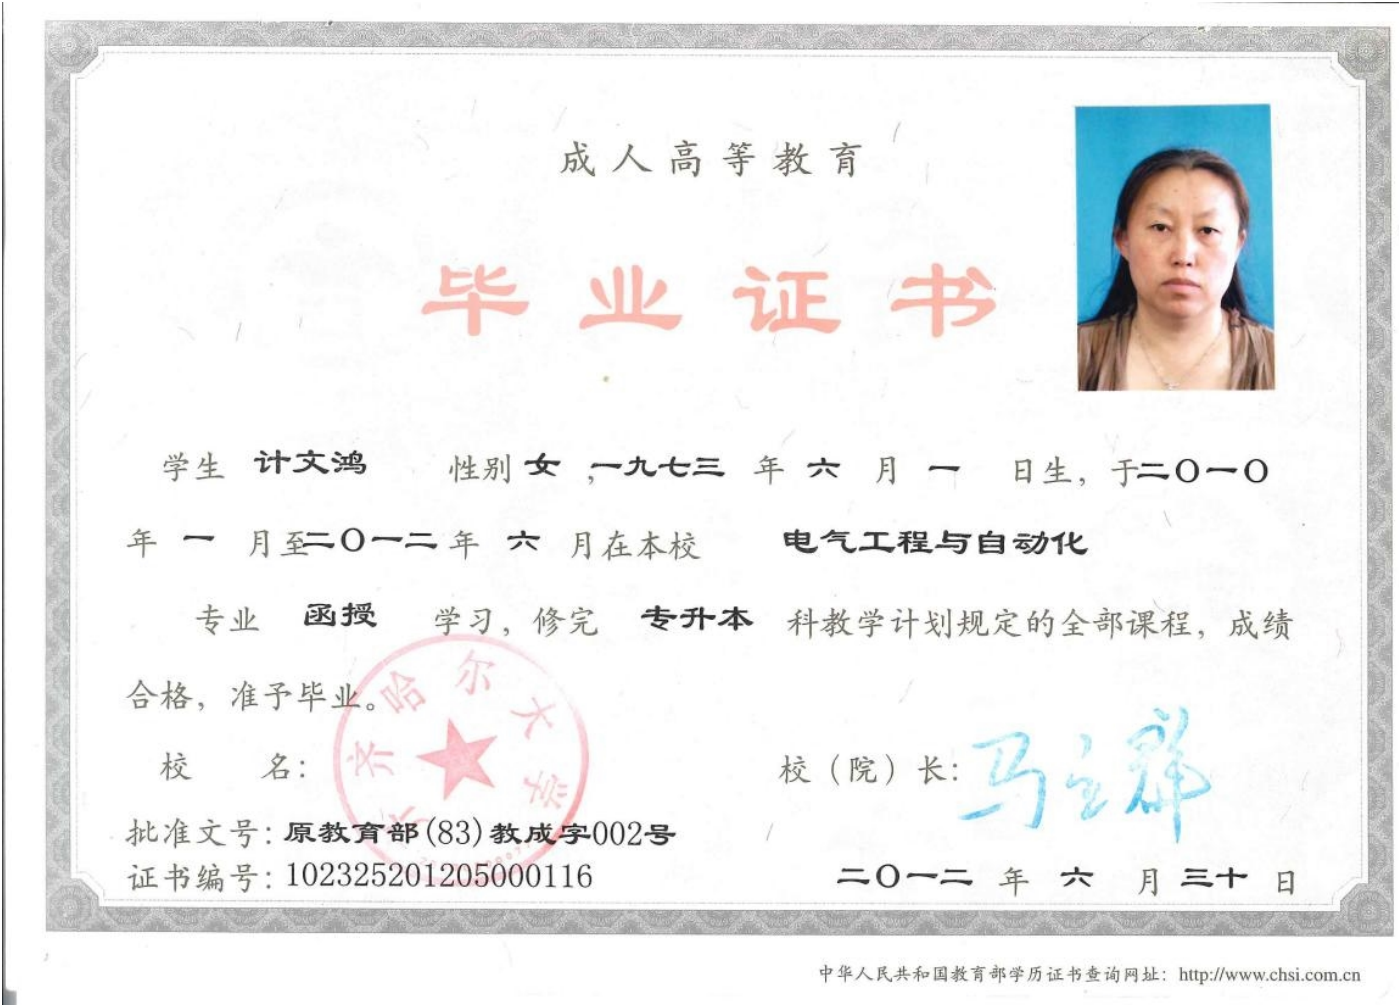 成人高等教育
毕业证书
学生 计文鸿 性别 女 ,一九七三 年 六 月 一 日生，于二〇一〇
年 一 月至二〇一二 年 六 月在本校 电气工程与自动化
专业 函授 学习，修完 专升本 科教学计划规定的全部课程，成绩
合格，准予毕业。
齐齐哈尔大学
校 名： 校（院）长：马立群
批准文号：原教育部(83)教成字002号
证书编号：102325201205000116 二〇一二 年 六 月 三十 日
中华人民共和国教育部学历证书查询网址：http://www.chsi.com.cn